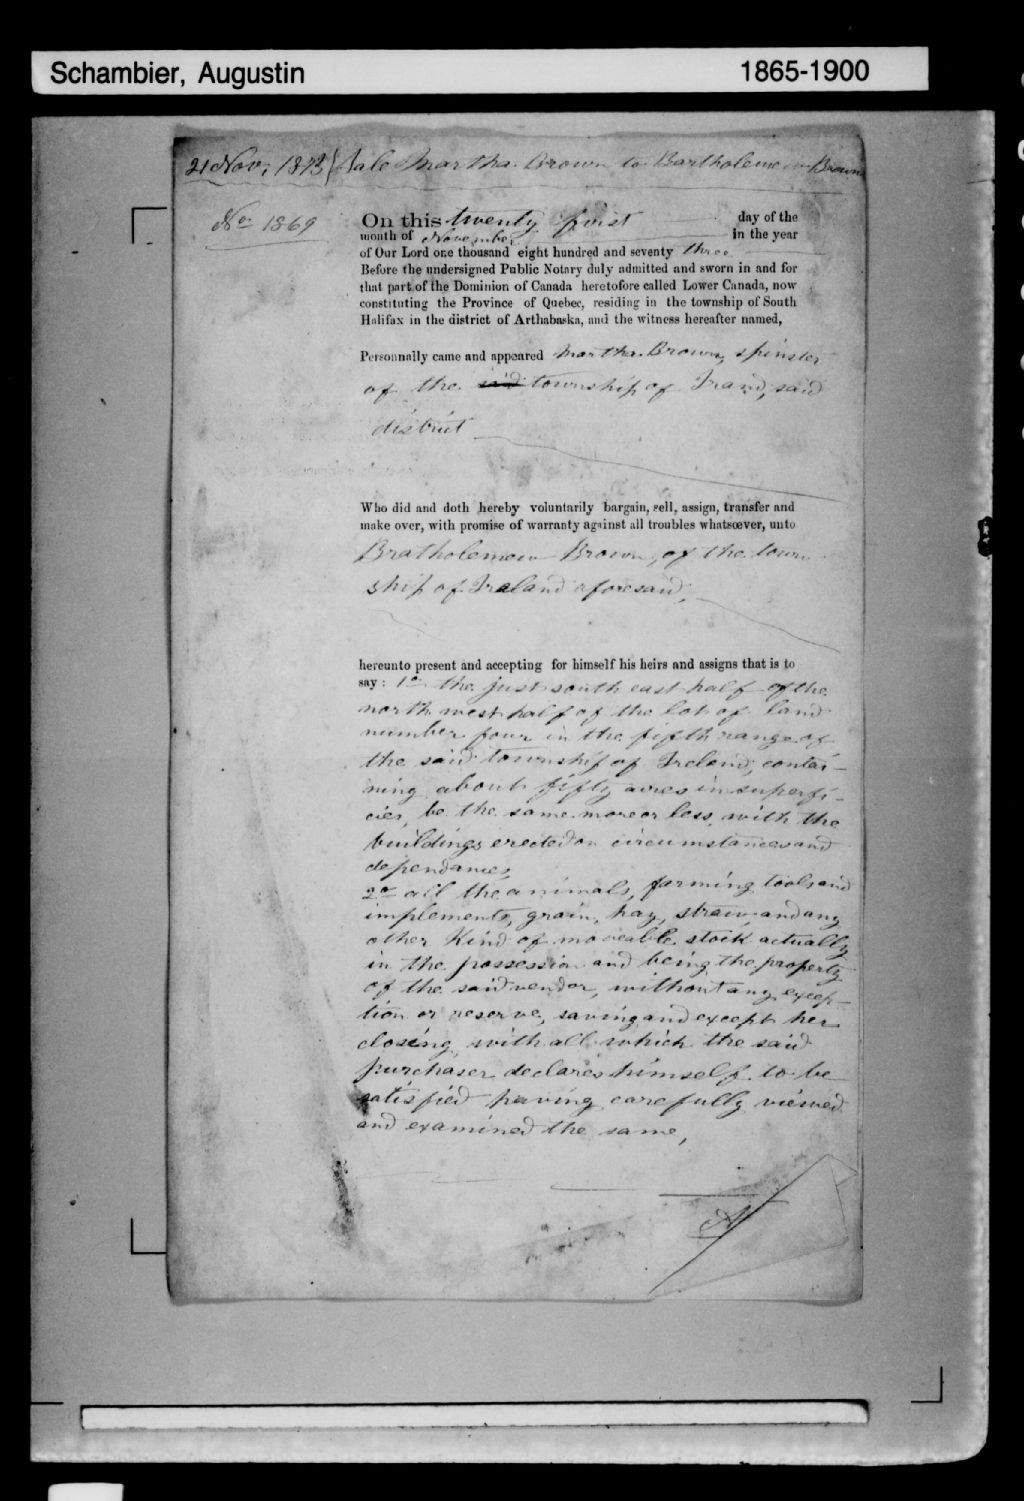 Schambier, Augustin 1865-1900
21 Nov; 1873 Sale Martha Brown to Bartholemew Brown
No 1869
On this twenty first day of the
month of November in the year
of Our Lord one thousand eight hundred and seventy three
Before the undersigned Public Notary duly admitted and sworn in and for
that part of the Dominion of Canada heretofore called Lower Canada, now
constituting the Province of Quebec, residing in the township of South
Halifax in the district of Arthabaska, and the witness hereafter named,
Personnally came and appeared Martha Brown, spinster
of the said township of said
district
Who did and doth hereby voluntarily bargain, sell, assign, transfer and
make over, with promise of warranty against all troubles whatsœver, unto
Bratholemew Brown, of the town
ship of Ireland aforesaid,
hereunto present and accepting for himself his heirs and assigns that is to
say: 1o the just south east half of the
north west half of the lot of land
number four in the fifth range of
the said township of Ireland, contai-
ning about fifty acres in superfi-
cies, be the same more or less, with the
buildings erected on circumstances and
dependances,
2o all the animals, farming tools and
implements, grain, hay, straw, and any
other kind of moveable stock actually
in the possession and being the property
of the said vendor, without any excep-
tion or reserve, saving and except her
closing, with all which the said
purchaser declares himself to be
satisfied having carefully viewed
and examined the same,